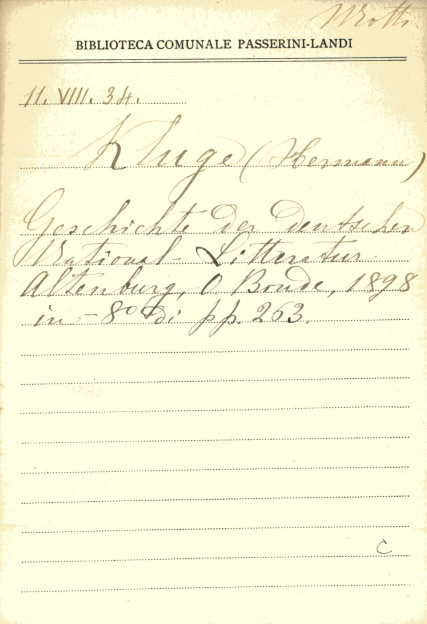 BIBLIOTECA COMUNALE PASSERINI-LANDI
11. VIII. 34.
Kluge (Hermann)
Geschichte der deutschen
National-Litteratur
Altenburg, O Bonde, 1898
in-8° di pp. 263.
C